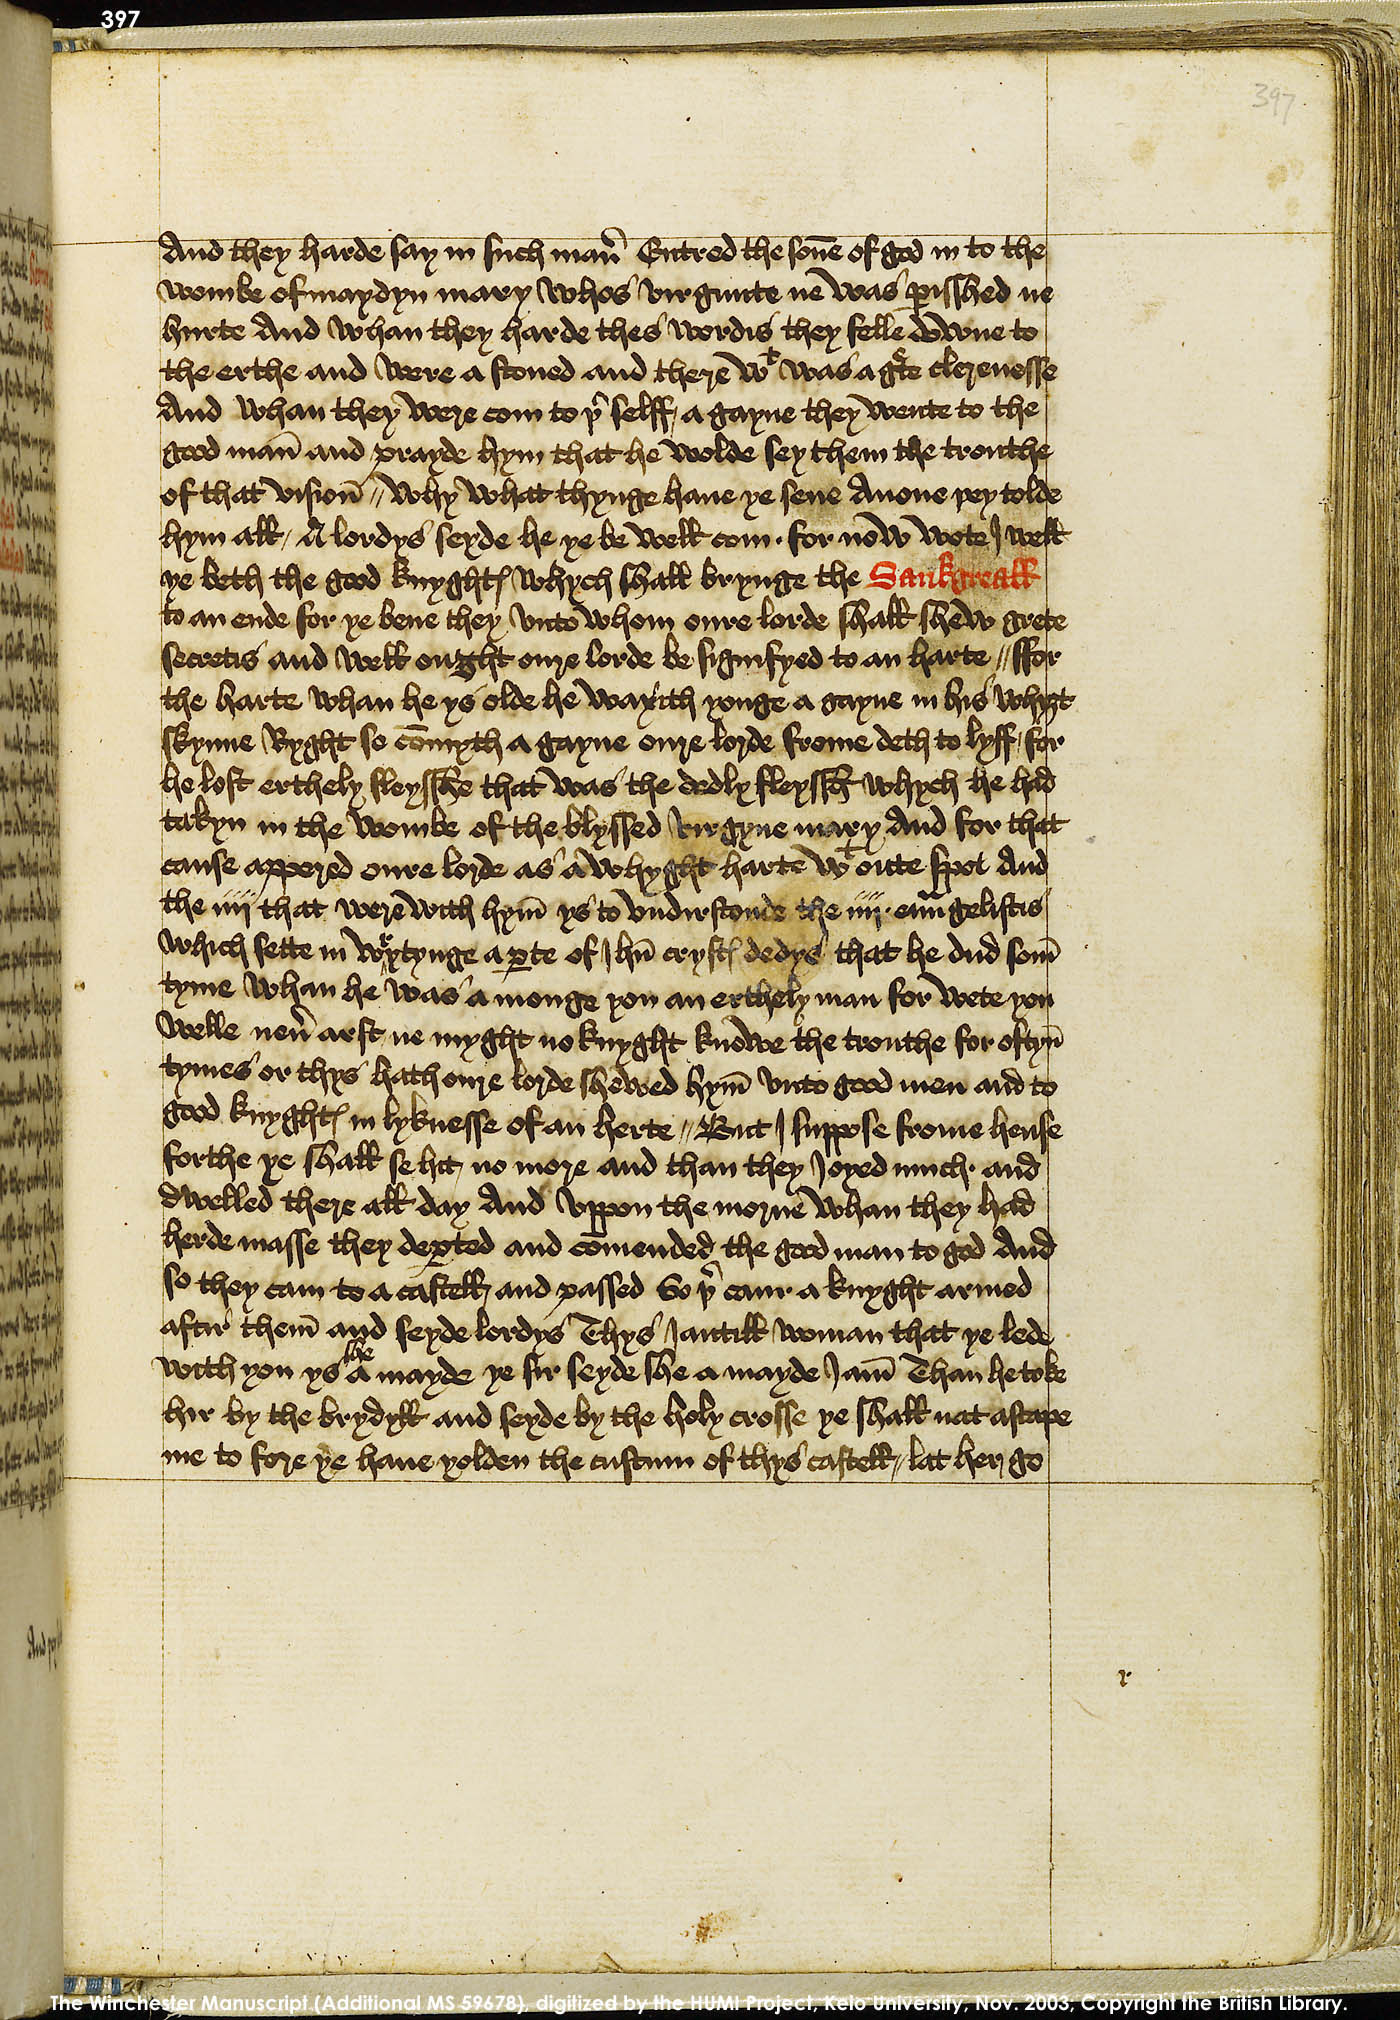 397
397
And they harde say in such man̄ Entred the son̄e of god in to the
wombe of maydyn mary whos virginite ne was ꝑisshed ne
hurte And whan they harde thes wordis they felle downe to
the erthe and were a stoned and there wᵗ was a gᵃte clerenesse
And whan they were com to þᵉ selff / a gayne they wente to the
good man̄ and prayde hym that he wolde sey them the trouthe
of that vision̄ // why what thynge haue ye sene Anone þey tolde
hym all / A lordys seyde he ye be well com · for now wote I well
ye beth the good knyghtꝭ whych shall brynge the Sankgreall
to an ende for ye bene they vnto whom oure lorde shall shew grete
secretis and well ought oure lorde be signifyed to an harte // ffor
the harte whan he ys olde he waxith yonge a gayne in his whyʒt
skynne Ryght so com̄yth a gayne oure lorde frome deth to lyff / for
he lost erthely fleysshe that was the dedly fleyssh whych he had
takyn in the wombe of the blyssed virgyne mary And for that
cause appered oure lorde as a whyght harte wᵗ oute spot And
the iiij that were with hym̄ ys to vndirstonde the iiij · euan̄gelistis
which sette in wrytynge a ꝑte of Jhū crystꝭ dedys that he dud som̄
tyme whan he was a monge you an erthely man for wete you
welle neū arst ne myght no knyght knowe the trouthe for oftyn̄
tymes or thys hath oure lorde shewed hym̄ vnto good men and to
good knyghtꝭ in lyknesse of an herte // But I suppose frome hense
forthe ye shall se hit no more and than they Joyed much · and
dwelled there all day And vppon the morne whan they had
herde masse they deꝑted and com̄ended the good man to god And
so they cam to a castell and passed So þᵉ cam a knyght armed
aftir them̄ and seyde lordys Thys Jantill woman that ye lede
with you ys she a mayde ye sir seyde she a mayde I am̄ Than he toke
hir by the brydyll and seyde by the holy crosse ye shall nat ascape
me to fore ye haue yolden the custum of thys castell // lat her go
The Winchester Manuscript (Additional MS 59678), digitized by the HUMI Project, Keio University, Nov. 2003, Copyright the British Library.